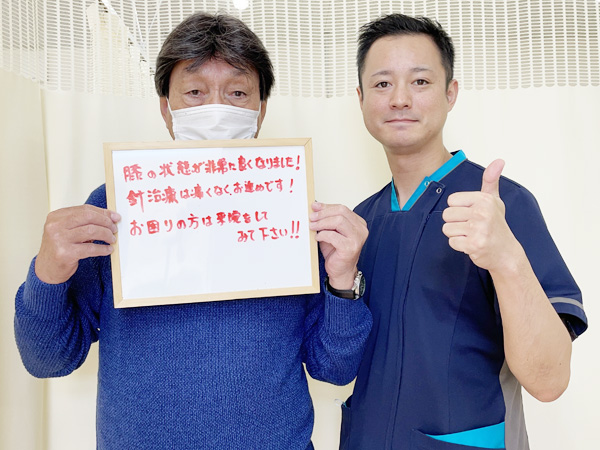 膝の状態が非常に良くなりました!
針治療は痛くなく、お進めです!
お困りの方は来院をして
みて下さい!!